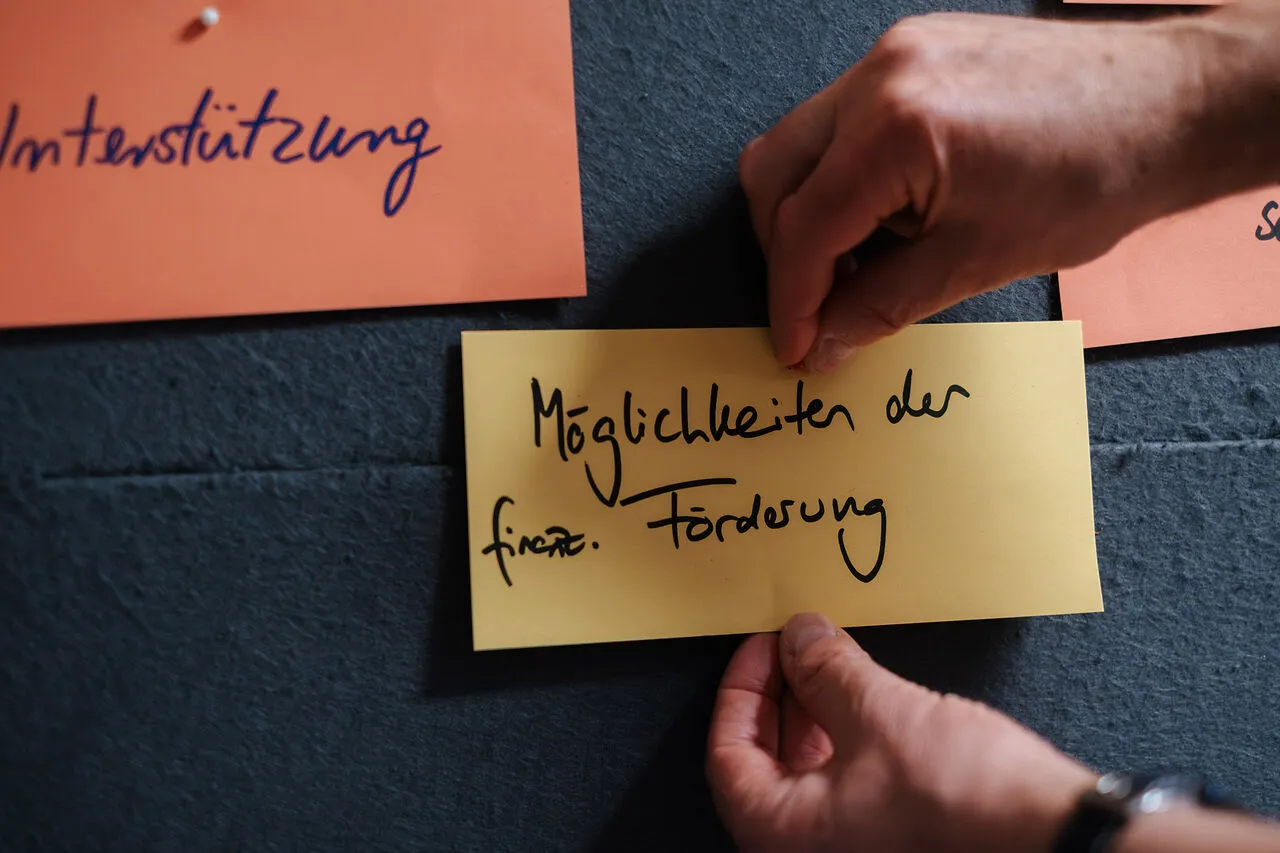 Unterstützung
Möglichkeiten der
finanz. Förderung